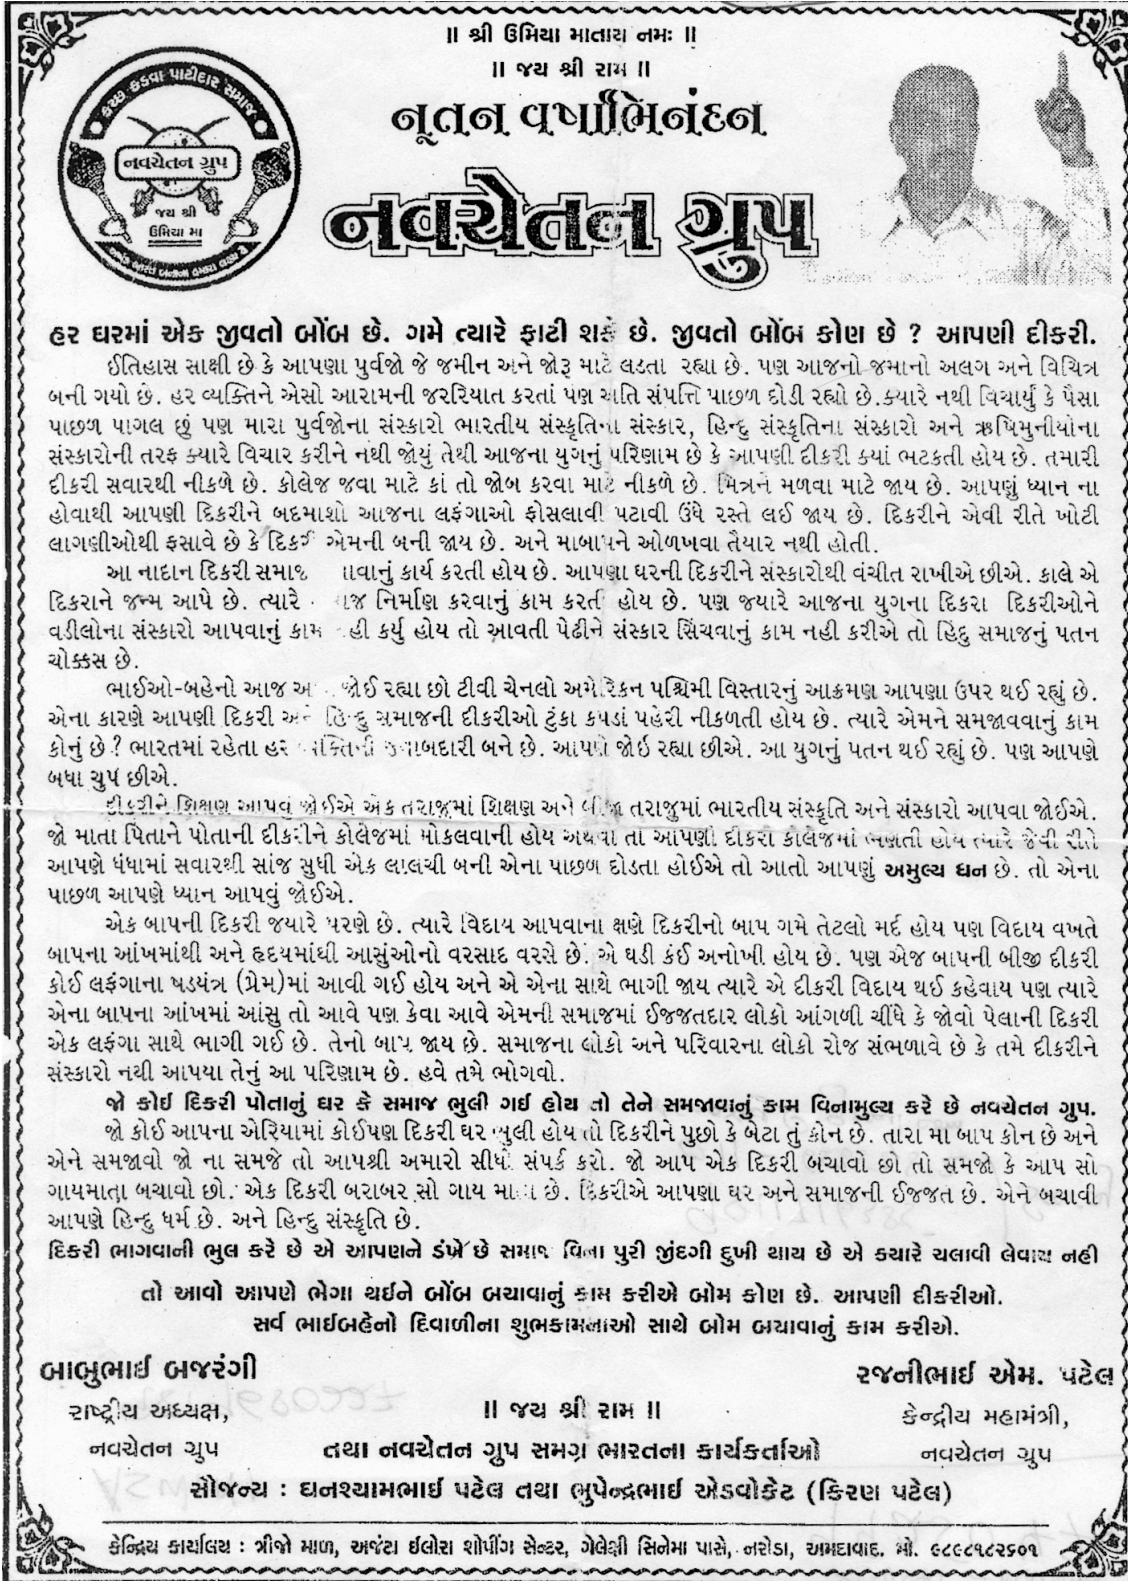 ॥ શ્રી ઉમિયા માતાય નમઃ ॥
॥ જય શ્રી રામ ॥
નૂતન વર્ષાભિનંદન
કચ્છ કડવા પાટીદાર સમાજ
નવચેતન ગ્રુપ
જય શ્રી
ઉમિયા મા
નવચેતન ગ્રુપ
હર ઘરમાં એક જીવતો બોંબ છે. ગમે ત્યારે ફાટી શકે છે. જીવતો બોંબ કોણ છે ? આપણી દીકરી.
ઈતિહાસ સાક્ષી છે કે આપણા પુર્વજો જે જમીન અને જોરૂ માટે લડતા રહ્યા છે. પણ આજનો જમાનો અલગ અને વિચિત્ર
બની ગયો છે. હર વ્યક્તિને એસો આરામની જરરિયાત કરતાં પણ અતિ સંપત્તિ પાછળ દોડી રહ્યો છે.ક્યારે નથી વિચાર્યું કે પૈસા
પાછળ પાગલ છું પણ મારા પુર્વજોના સંસ્કારો ભારતીય સંસ્કૃતિના સંસ્કાર, હિન્દુ સંસ્કૃતિના સંસ્કારો અને ઋષિમુનીયોના
સંસ્કારોની તરફ ક્યારે વિચાર કરીને નથી જોયું તેથી આજના યુગનું પરિણામ છે કે આપણી દીકરી ક્યાં ભટકતી હોય છે. તમારી
દીકરી સવારથી નીકળે છે. કોલેજ જવા માટે કાં તો જોબ કરવા માટે નીકળે છે. મિત્રને મળવા માટે જાય છે. આપણું ધ્યાન ના
હોવાથી આપણી દિકરીને બદમાશો આજના લફંગાઓ ફોસલાવી પટાવી ઉંધે રસ્તે લઈ જાય છે. દિકરીને એવી રીતે ખોટી
લાગણીઓથી ફસાવે છે કે દિકરી એમની બની જાય છે. અને માબાપને ઓળખવા તૈયાર નથી હોતી.
આ નાદાન દિકરી સમાજ કાર્ય કરતી હોય છે. આપણા ઘરની દિકરીને સંસ્કારોથી વંચીત રાખીએ છીએ. કાલે એ
દિકરાને જન્મ આપે છે. ત્યારે નિર્માણ કરવાનું કામ કરતી હોય છે. પણ જયારે આજના યુગના દિકરા દિકરીઓને
વડીલોના સંસ્કારો આપવાનું કામ કર્યુ હોય તો આવતી પેઢીને સંસ્કાર સિંચવાનું કામ નહી કરીએ તો હિદુ સમાજનું પતન
ચોક્કસ છે.
ભાઈઓ-બહેનો આજ જોઈ રહ્યા છો ટીવી ચેનલો અમેરિકન પશ્ચિમી વિસ્તારનું આક્રમણ આપણા ઉપર થઈ રહ્યું છે.
એના કારણે આપણી દિકરી અને હિન્દુ સમાજની દીકરીઓ ટુંકા કપડાં પહેરી નીકળતી હોય છે. ત્યારે એમને સમજાવવાનું કામ
કોનું છે ? ભારતમાં રહેતા હર વ્યક્તિની જવાબદારી બને છે. આપણે જોઇ રહ્યા છીએ. આ યુગનું પતન થઈ રહ્યું છે. પણ આપણે
બધા ચુપ છીએ.
દીકરીને શિક્ષણ આપવું જોઈએ એક તરાજુમાં શિક્ષણ અને બીજા તરાજુમાં ભારતીય સંસ્કૃતિ અને સંસ્કારો આપવા જોઈએ.
જો માતા પિતાને પોતાની દીકરીને કોલેજમાં મોકલવાની હોય અથવા તો આપણી દીકરી કોલેજમાં ભણતી હોય ત્યારે જેવી રીતે
આપણે ધંધામાં સવારથી સાંજ સુધી એક લાલચી બની એના પાછળ દોડતા હોઈએ તો આતો આપણું અમુલ્ય ધન છે. તો એના
પાછળ આપણે ધ્યાન આપવું જોઈએ.
એક બાપની દિકરી જયારે પરણે છે. ત્યારે વિદાય આપવાના ક્ષણે દિકરીનો બાપ ગમે તેટલો મર્દ હોય પણ વિદાય વખતે
બાપના આંખમાંથી અને હૃદયમાંથી આસુંઓનો વરસાદ વરસે છે. એ ઘડી કંઈ અનોખી હોય છે. પણ એજ બાપની બીજી દીકરી
કોઈ લફંગાના ષડયંત્ર (પ્રેમ)માં આવી ગઈ હોય અને એ એના સાથે ભાગી જાય ત્યારે એ દીકરી વિદાય થઈ કહેવાય પણ ત્યારે
એના બાપના આંખમાં આંસુ તો આવે પણ કેવા આવે એમની સમાજમાં ઈજજતદાર લોકો આંગળી ચીંધે કે જોવો પેલાની દિકરી
એક લફંગા સાથે ભાગી ગઈ છે. તેનો બાપ જાય છે. સમાજના લોકો અને પરિવારના લોકો રોજ સંભળાવે છે કે તમે દીકરીને
સંસ્કારો નથી આપયા તેનું આ પરિણામ છે. હવે તમે ભોગવો.
જો કોઇ દિકરી પોતાનું ઘર કે સમાજ ભુલી ગઇ હોય તો તેને સમજાવાનું કામ વિનામુલ્ય કરે છે નવચેતન ગ્રુપ.
જો કોઈ આપના એરિયામાં કોઈપણ દિકરી ઘર ભુલી હોય તો દિકરીને પુછો કે બેટા તું કોન છે. તારા મા બાપ કોન છે અને
એને સમજાવો જો ના સમજે તો આપશ્રી અમારો સીધો સંપર્ક કરો. જો આપ એક દિકરી બચાવો છો તો સમજો કે આપ સો
ગાયમાતા બચાવો છો. એક દિકરી બરાબર સો ગાય માતા છે. દિકરીએ આપણા ઘર અને સમાજની ઈજજત છે. એને બચાવી
આપણે હિન્દુ ધર્મ છે. અને હિન્દુ સંસ્કૃતિ છે.
દિકરી ભાગવાની ભુલ કરે છે એ આપણને ડંખે છે સમાજ વિના પુરી જીંદગી દુખી થાય છે એ કયારે ચલાવી લેવાય નહી
તો આવો આપણે ભેગા થઇને બોંબ બચાવાનું કામ કરીએ બોમ કોણ છે. આપણી દીકરીઓ.
સર્વ ભાઈબહેનો દિવાળીના શુભકામનાઓ સાથે બોમ બચાવાનું કામ કરીએ.
બાબુભાઈ બજરંગી
રાષ્ટ્રીય અધ્યક્ષ,
નવચેતન ગ્રુપ
રજનીભાઈ એમ. પટેલ
કેન્દ્રીય મહામંત્રી,
નવચેતન ગ્રુપ
॥ જય શ્રી રામ ॥
તથા નવચેતન ગ્રુપ સમગ્ર ભારતના કાર્યકર્તાઓ
સૌજન્ય : ઘનશ્યામભાઈ પટેલ તથા ભુપેન્દ્રભાઈ એડવોકેટ (કિરણ પટેલ)
કેન્દ્રિય કાર્યાલય : ત્રીજો માળ, અજંટા ઈલોરા શોપીંગ સેન્ટર, ગેલેક્ષી સિનેમા પાસે, નરોડા, અમદાવાદ. મો. ૯૮૯૮૧૮૨૬૦૧